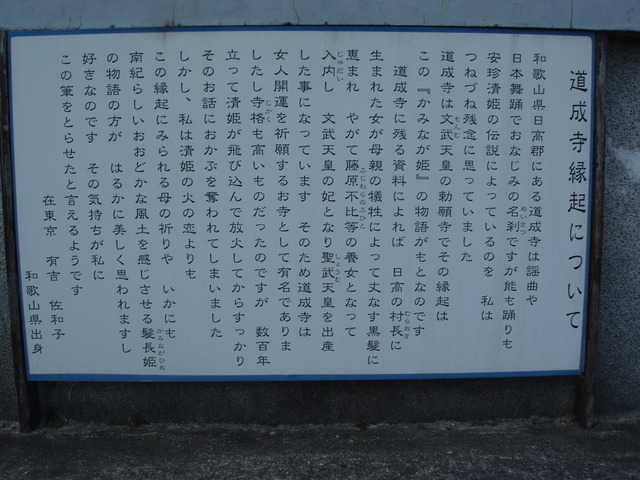 道成寺縁起について
和歌山県日高郡にある道成寺は謡曲や
日本舞踊でおなじみの名刹ですが能も踊りも
安珍清姫の伝説によっているのを 私は
つねづね残念に思っていました
道成寺は文武天皇の勅願寺でその縁起は
この『かみなが姫』の物語がもとなのです
道成寺に残る資料によれば 日高の村長に
生まれた女が母親の犠牲によって丈なす黒髪に
恵まれ やがて藤原不比等の養女となって
入内し 文武天皇の妃となり聖武天皇を出産
した事になっています そのため道成寺は
女人開運を祈願するお寺として有名でありま
したし寺格も高いものだったのですが 数百年
立って清姫が飛び込んで放火してからすっかり
そのお話におかぶを奪われてしまいました
しかし、私は清姫の火の恋よりも
この縁起にみられる母の祈りや いかにも
南紀らしいおおどかな風土を感じさせる髪長姫
の物語の方が はるかに美しく思われますし
好きなのです その気持ちが私に
この筆をとらせたと言えるようです
在東京 有吉 佐和子
和歌山県出身